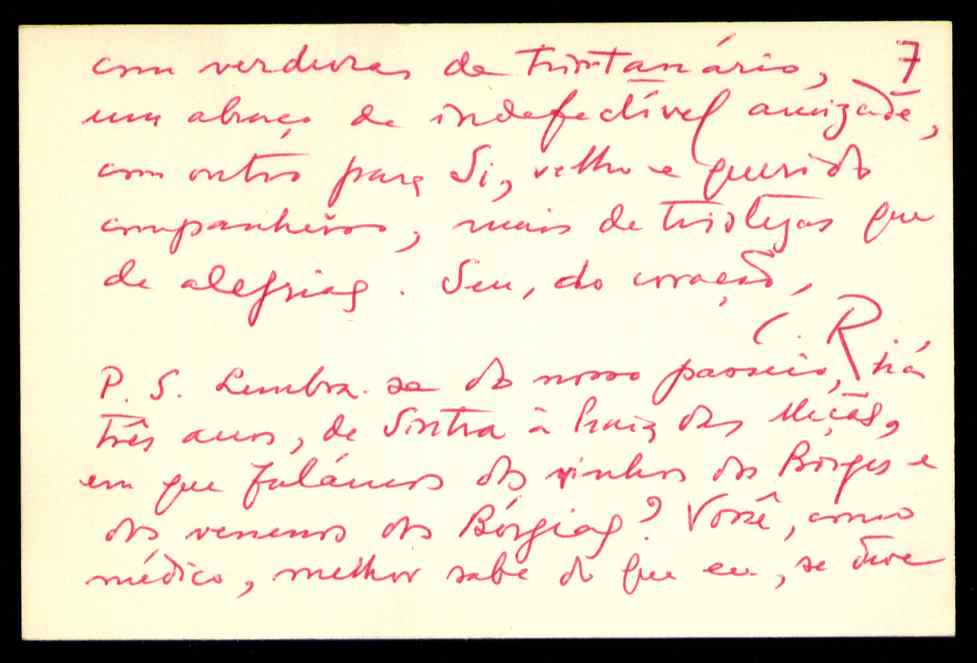 com verduras de trintanário, 7
um abraço de indefectível amizade,
com outro para Si, velho e querido
companheiro, mais de tristezas que
de alegrias. Seu, do coração,
C. R.
P. S. Lembra-se do nosso passeio, há
três anos, de Sintra à Praia das Maçãs,
em que falámos dos vinhos dos Borges e
dos venenos dos Bórgias? Você, como
médico, melhor sabe do que eu, se deve